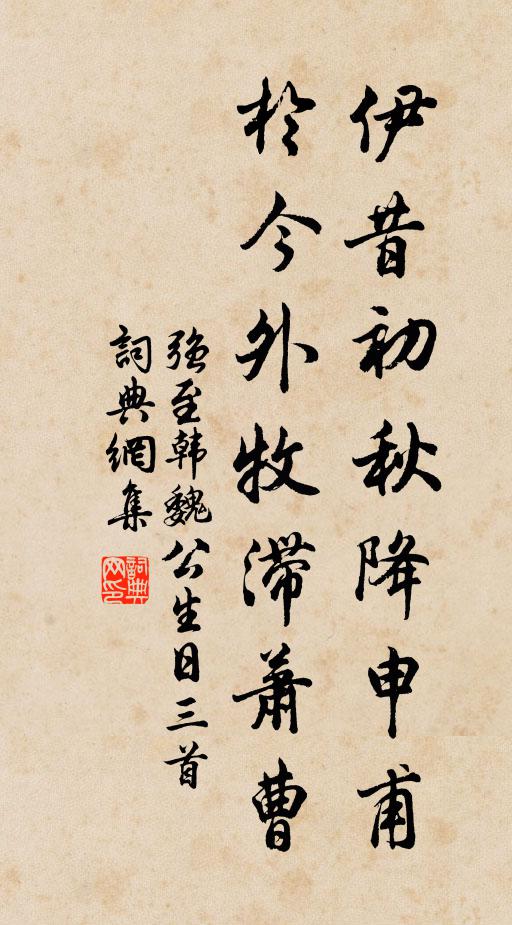 伊昔初秋降申甫
於今外牧滞蕭曹
强至韩魏公生日三首
詞典網集
詞典网印